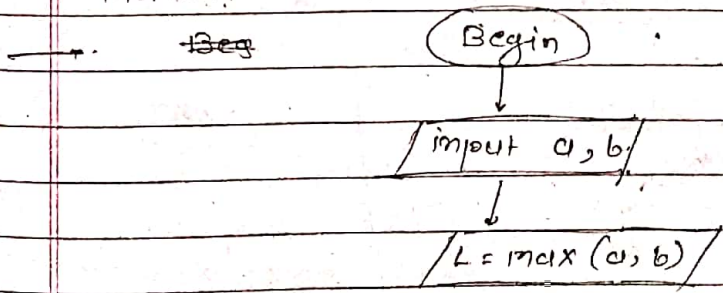 Begin
input a, b
L = max (a, b)